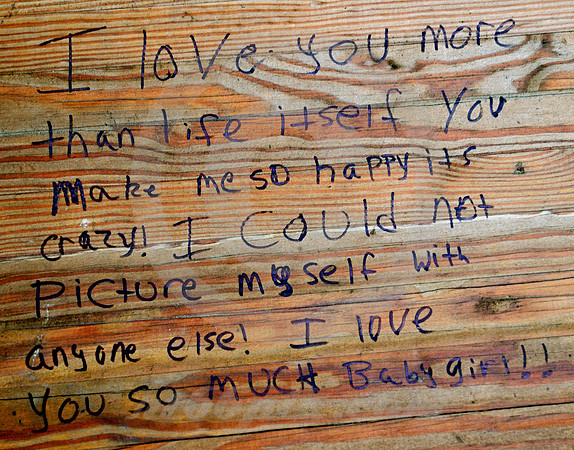 I love you more
than life itself You
Make me so happy its
crazy! I Could not
Picture myself with
anyone else! I love
You so MUCH Babygirl!!